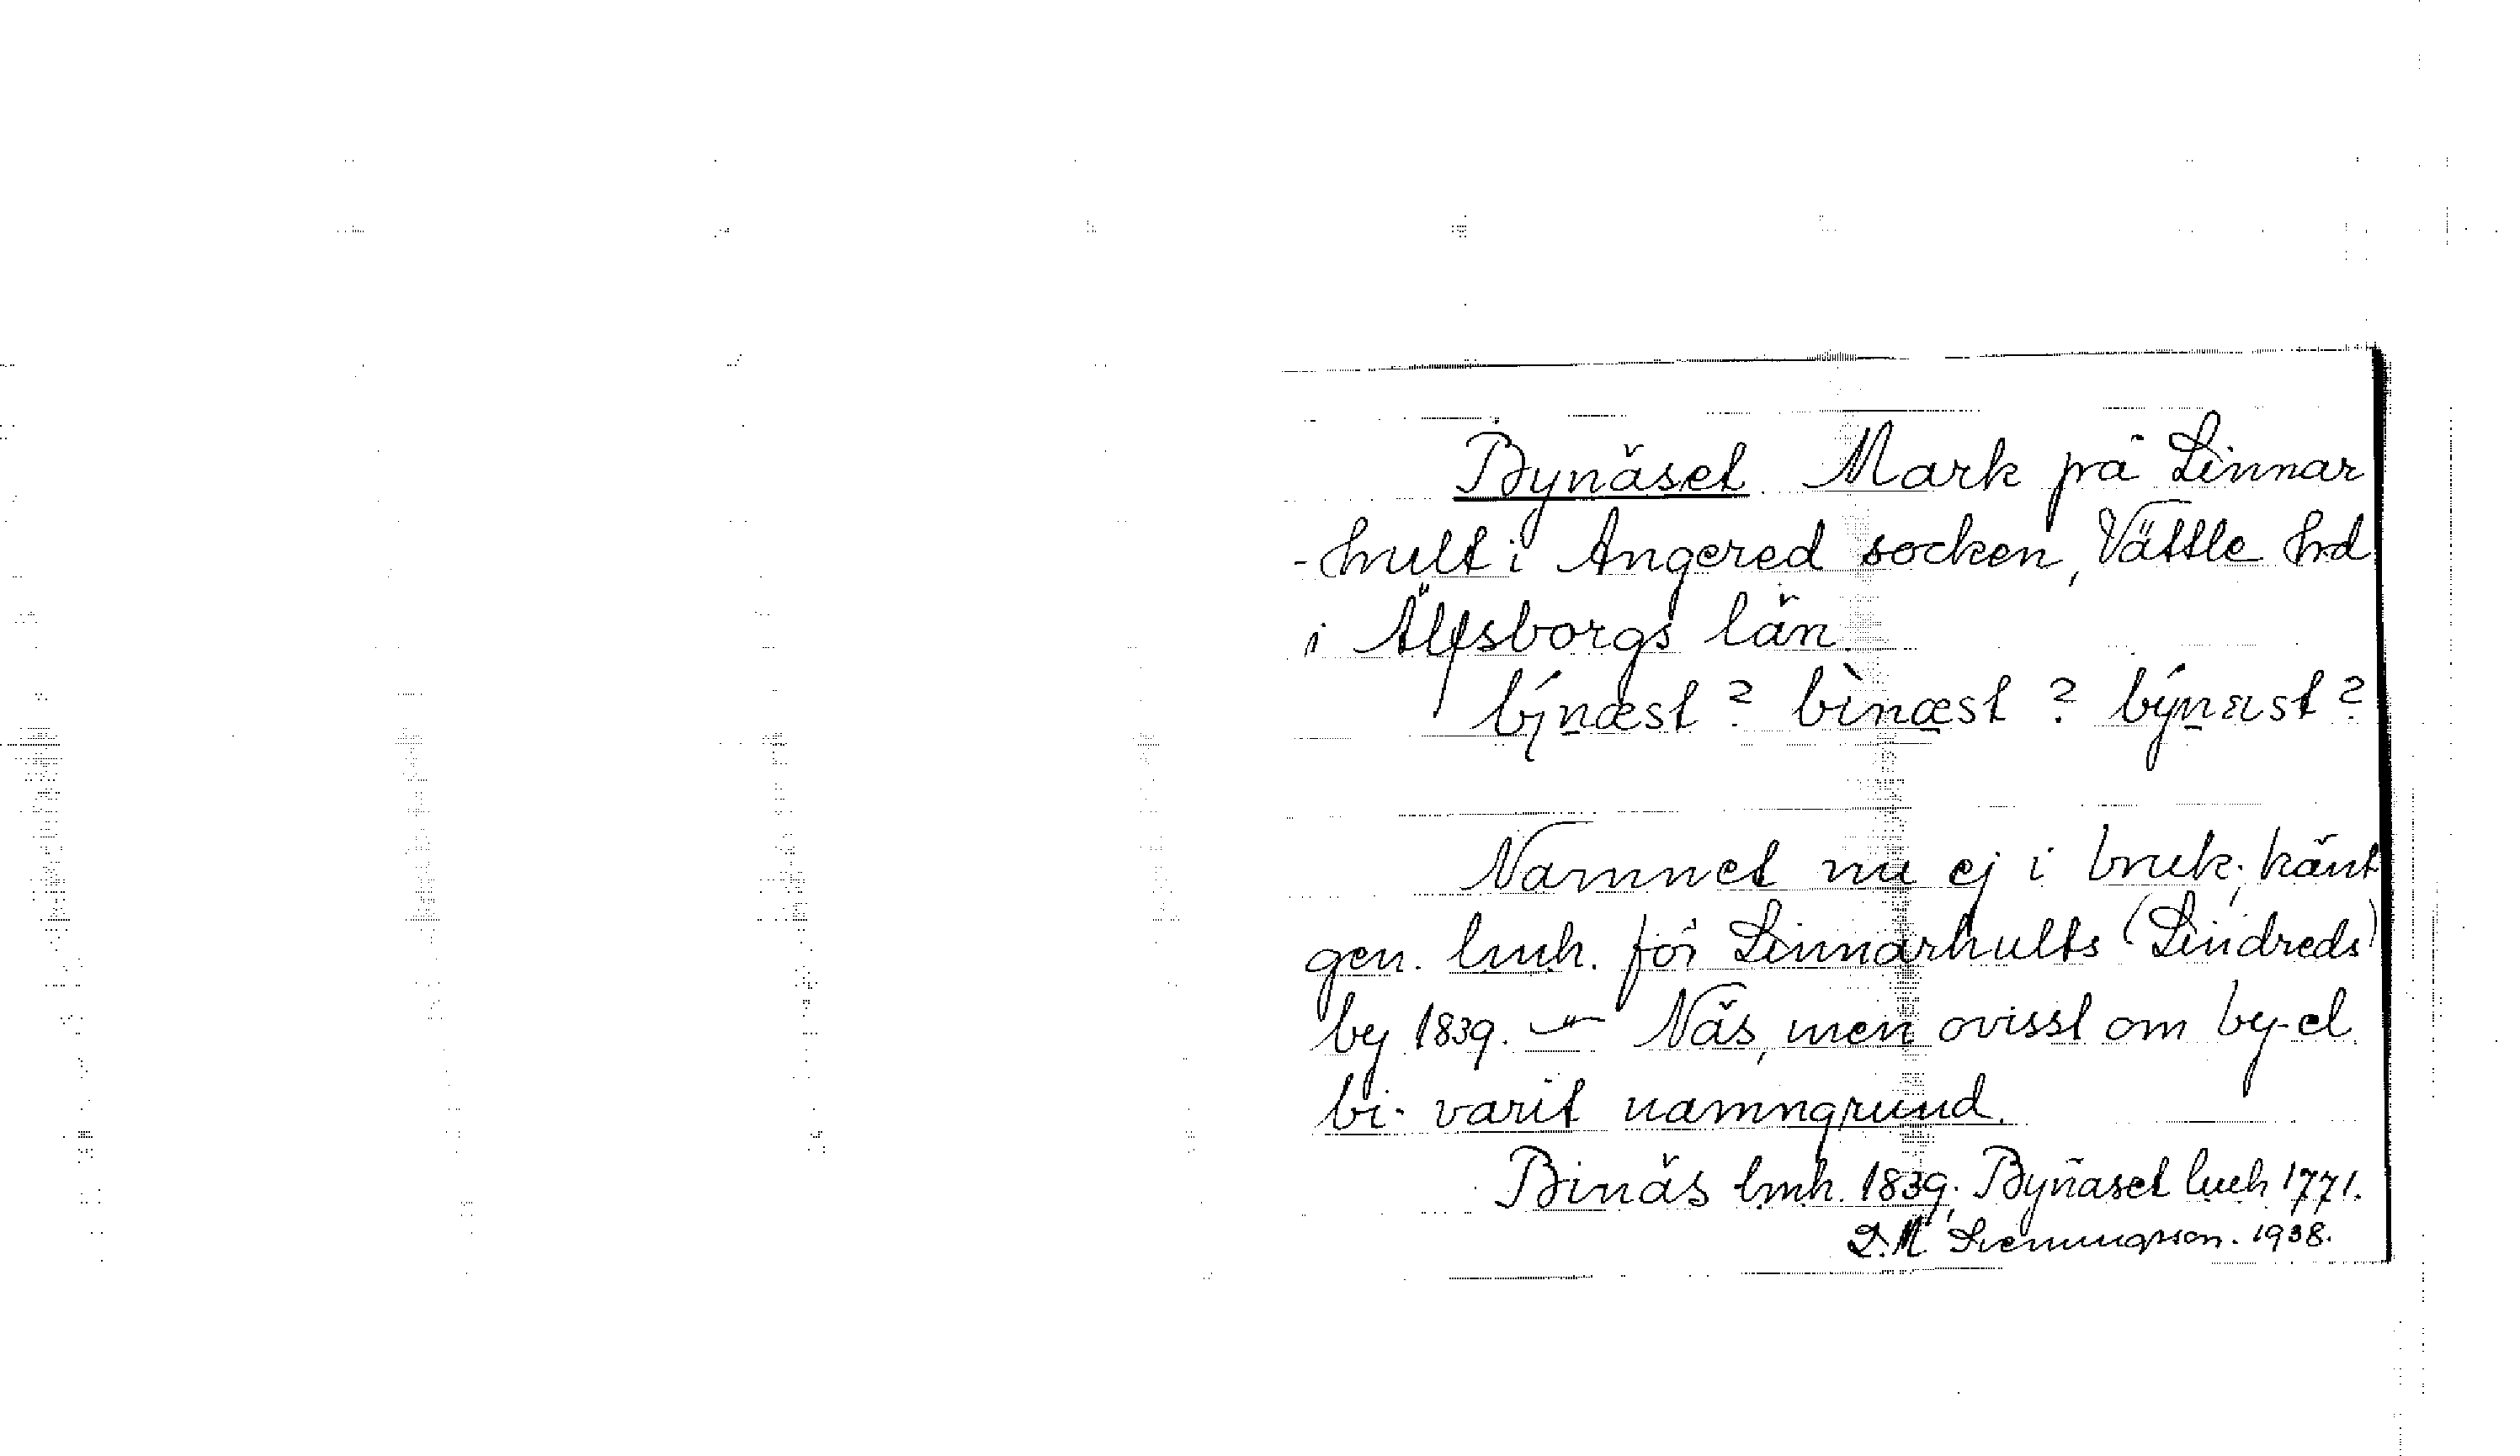 Bynäset. Mark på Linnar
-hult i Angered socken, Vättle hd
i Älfsborgs län.
býnæst? bìnæst? býnæst?
Namnet nu ej i bruk; känt
gen. lmh. för Linnarhults (Lindreds)
by 1839. –"– Näs, men ovisst om by- el.
bi- varit namngrund.
Binäs lmh. 1839; Bynäset lmh 1771.
D.M. Svenungsson. 1938.